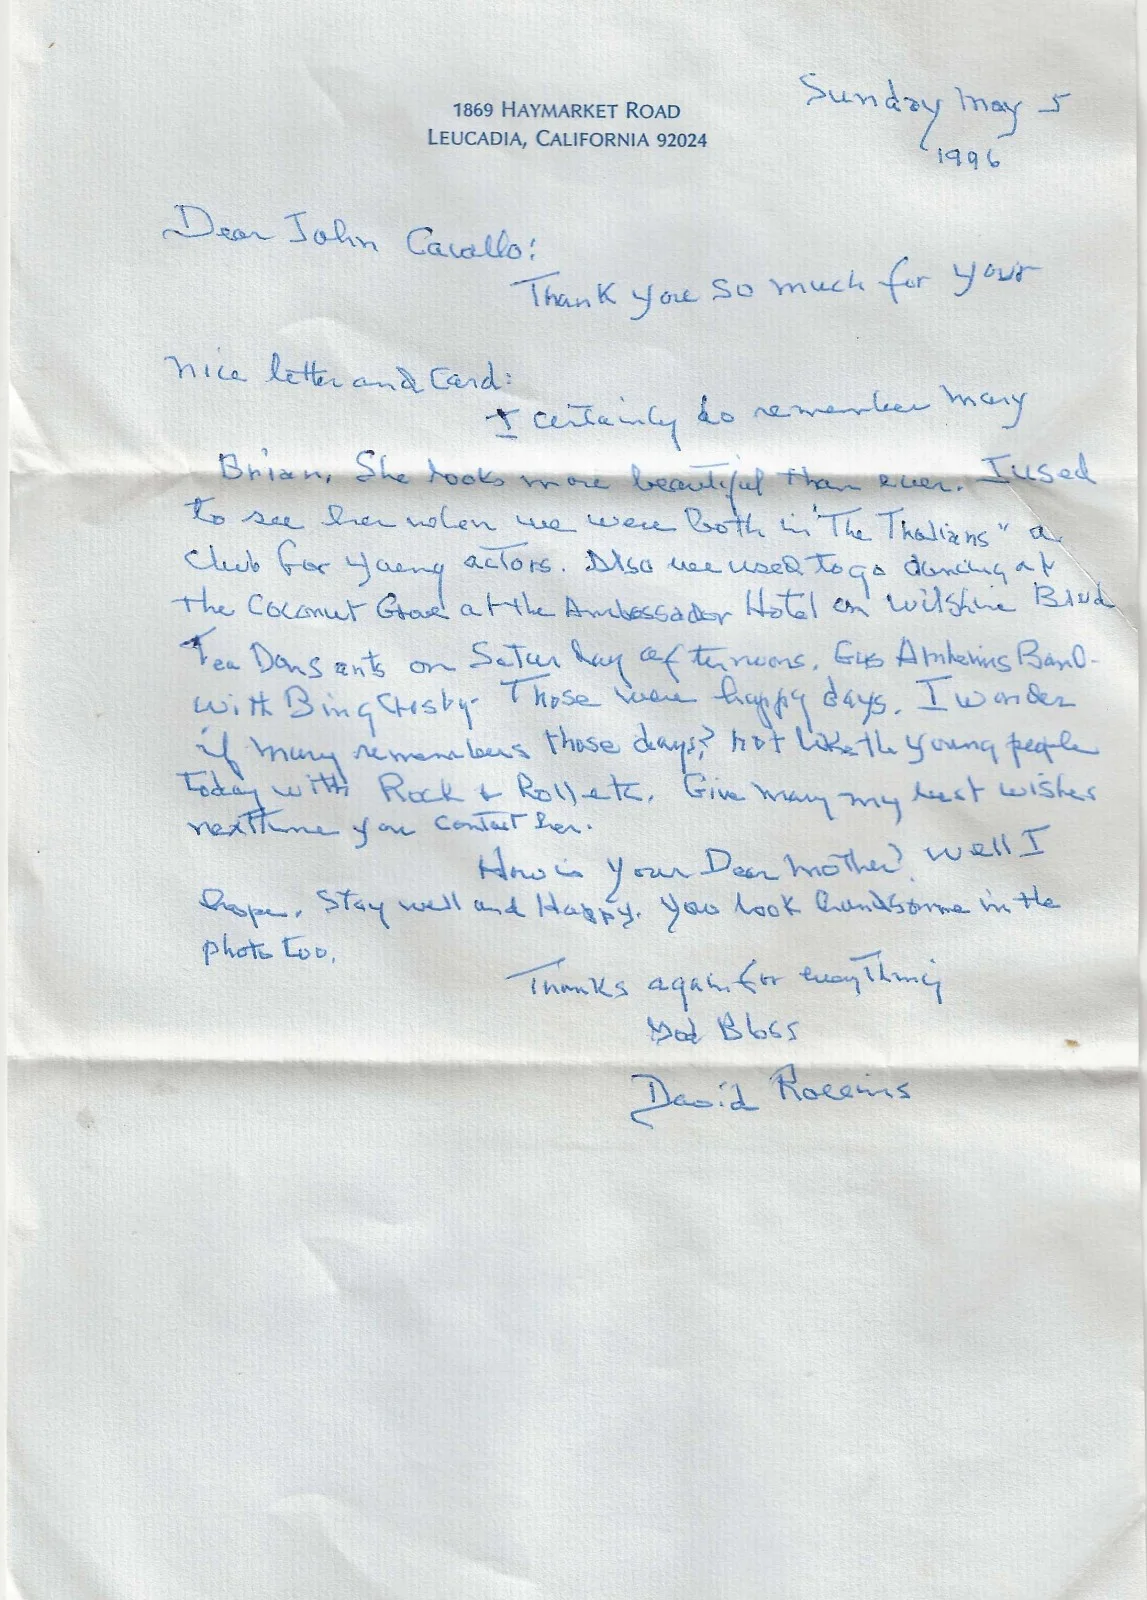 1869 HAYMARKET ROAD
LEUCADIA, CALIFORNIA 92024
Sunday May 5
1996
Dear John Cavallo:
Thank you so much for your
nice letter and Card:
I certainly do remember Mary
Brian. She looks more beautiful than ever. I used
to see her when we were both in "The Thalians" a
Club for young actors. Also we used to go dancing at
the Coconut Grove at the Ambassador Hotel on Wilshire Blvd
Tea Dansants on Saturday afternoons. Gus Arnheims Band-
with Bing Crosby- Those were happy days. I wonder
if Mary remembers those days? Not like the young people
today with Rock & Roll etc. Give Mary my best wishes
next time you contact her.
How is your Dear Mother? Well I
hope. Stay well and Happy. You look handsome in the
photo too.
Thanks again for everything
God Bless
David Rollins